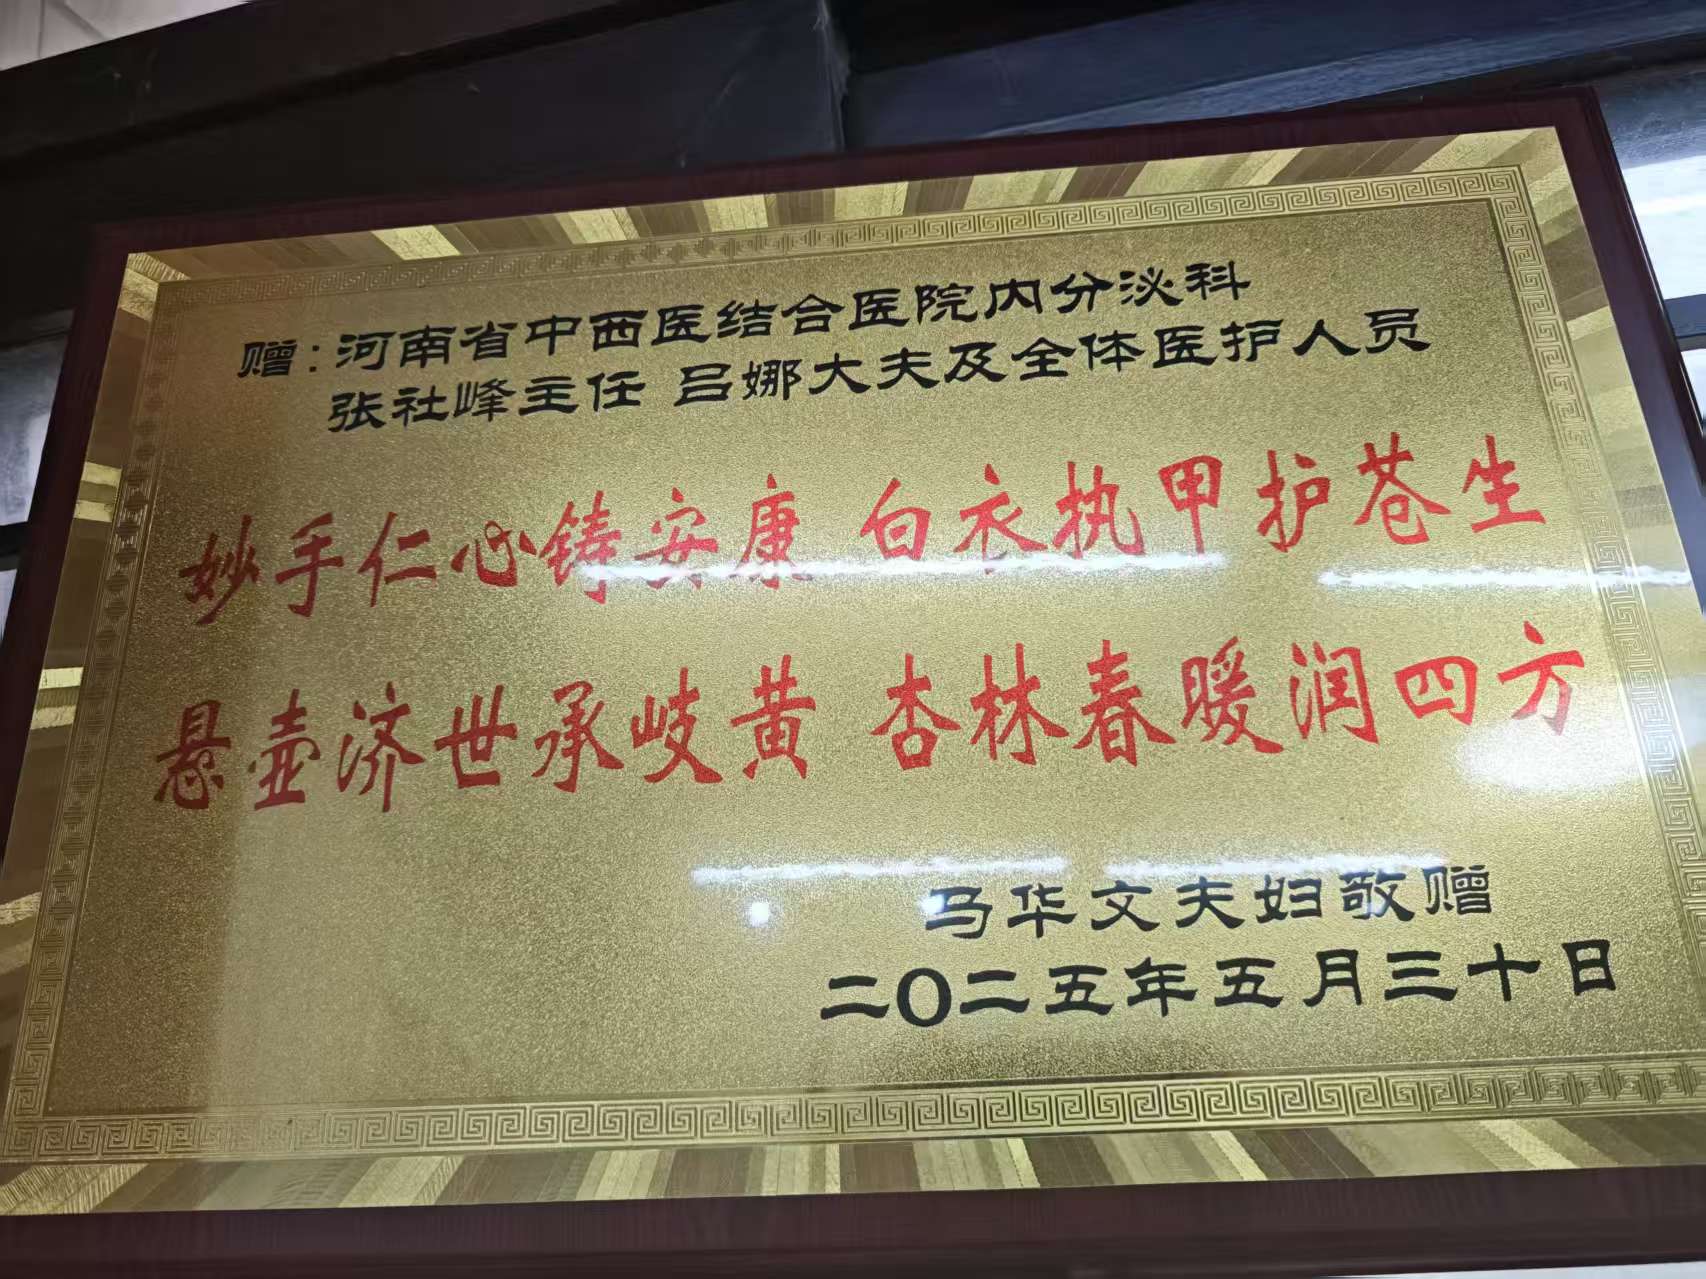 赠:河南省中西医结合医院内分泌科
张社峰主任 吕娜大夫及全体医护人员
妙手仁心铸安康 白衣执甲护苍生
悬壶济世承岐黄 杏林春暖润四方
马华文夫妇敬赠
二〇二五年五月三十日